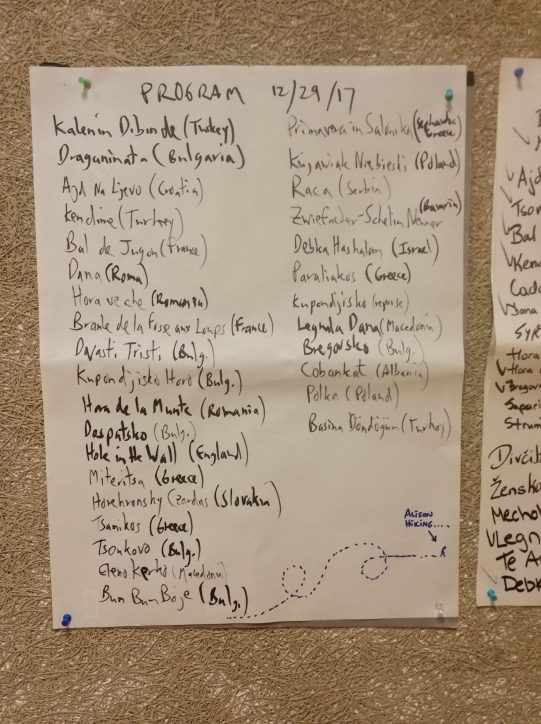 PROGRAM 12/29/17
Kalenin Dibinde (Turkey)
Draganinata (Bulgaria)
Ajd Na Lijevo (Croatia)
Kendime (Turkey)
Bal de Jugon (France)
Dana (Roma)
Hora veche (Romania)
Branle de la Fosse aux Loups (France)
Davasti Tristi (Bulg.)
Kupondjisko Horo (Bulg.)
Hora de la Munte (Romania)
Dospatsko (Bulg.)
Hole in the Wall (England)
Miteritsa (Greece)
Horehronsky Czardas (Slovakia)
Tsamikos (Greece)
Tsonkovo (Bulg.)
Eleno Kerko (Macedonia)
Bum Bum Boge (Bulg.)
Primavera in Salonika (Sephardic Greece)
Kujawiak Niebieski (Poland)
Raca (Serbia)
Zwiefacher-Schelim (Bavaria)
Debka Hashalom (Israel)
Paraliakos (Greece)
Kupondjisko (reprise)
Legnala Dana (Macedonia)
Bregovsko (Bulg.)
Cobankat (Albania)
Polka (Poland)
Basina Döndögün (Turkey)
ALISON
HIKING....
Ajd
Tson
Bal
Kend
Dana
Hora
Bregov
Divčib
Žensko
Mechol
Legn
Te A
Debk